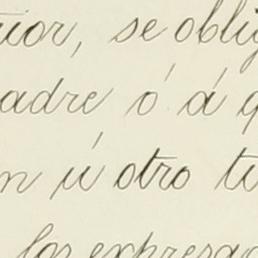 rior, se oblig
adre ó á q
n ú otro tu
los expresad